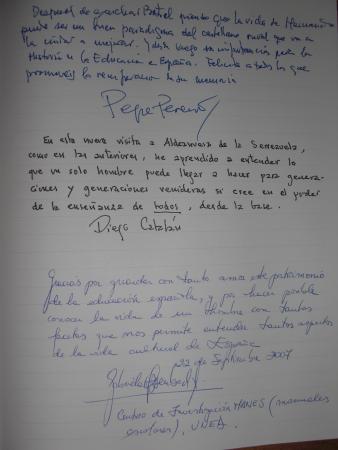 Después de escuchar pienso que la vida de
puede ser un buen paradigma del castellano rural que va a
la ciudad a mejorar. Y desde luego su importancia para la
Historia de la Educación en España. Felicito a todos los que
promovéis la recuperación de su memoria
En esta nueva visita a Aldeanueva de la Serrezuela,
como en las anteriores, he aprendido a entender lo
que un solo hombre puede llegar a hacer para genera-
ciones y generaciones venideras si cree en el poder
de la enseñanza de todos, desde la base.
Diego Catalán
Gracias por guardar con tanto amor este patrimonio
de la educación española, y por hacer posible
conocer la vida de un hombre con tantas
facetas que nos permite entender tantos aspectos
de la vida cultural de España
22 de Septiembre 2007
Gabriela Ossenbach
Centro de Investigación MANES (manuales
escolares), UNED.